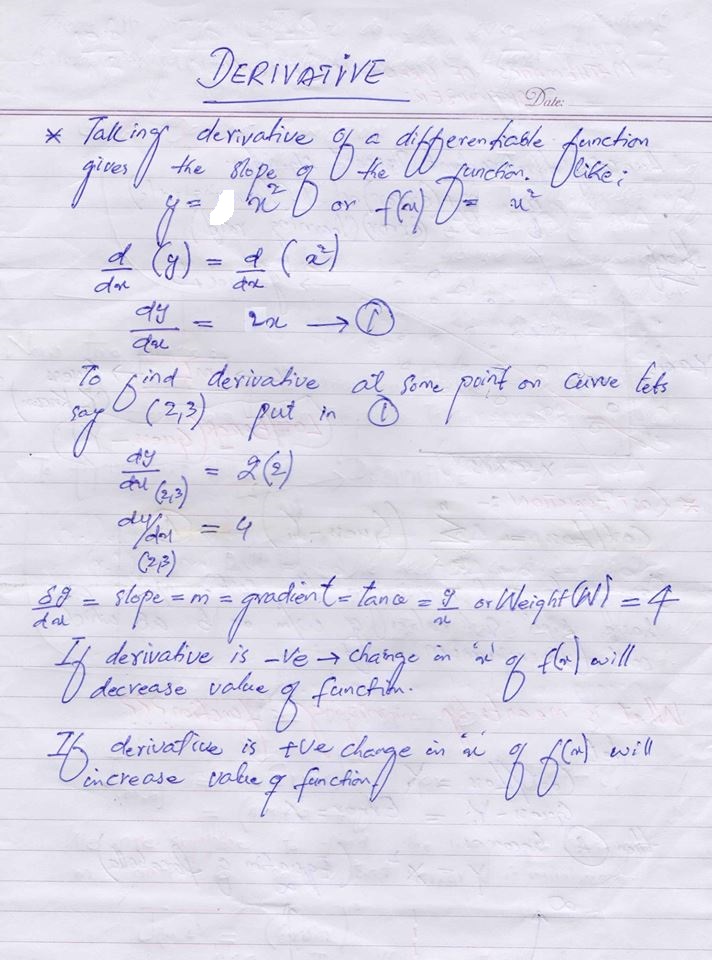 DERIVATIVE
Date:
* Taking derivative of a differentiable function
gives the slope of the function. like;
y = x² or f(x) = x²
d/dx (y) = d/dx (x²)
dy/dx = 2x → ①
To find derivative at some point on curve lets
say (2,3) put in ①
dy/dx (2,3) = 2(2)
dy/dx (2,3) = 4
δy/dx = slope = m = gradient = tanα = y/x or Weight(W) = 4
If derivative is -ve → change in 'x' of f(x) will
decrease value of function.
If derivative is +ve change in 'x' of f(x) will
increase value of function